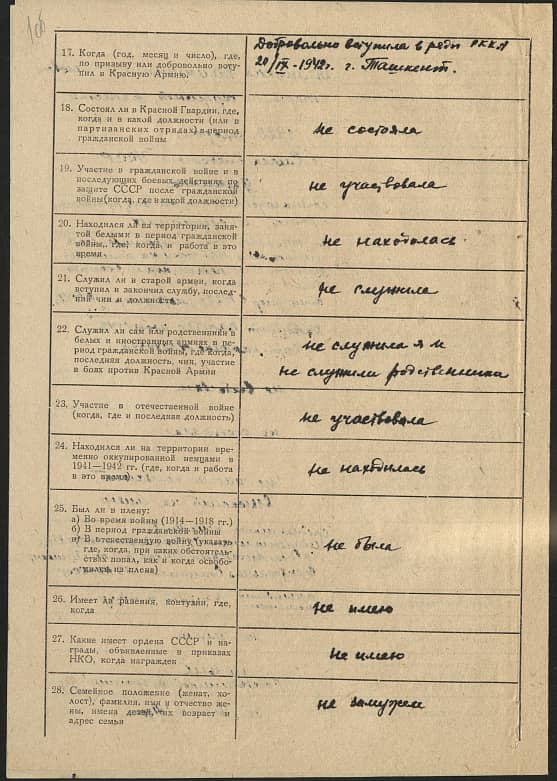 17. Когда (год, месяц и число), где,
по призыву или добровольно всту-
пил в Красную Армию.
Добровольно вступила в ряды РККА
20/IX-1942г. г. Ташкент.
18. Состоял ли в Красной Гвардии, где,
когда и в какой должности (или в
партизанских отрядах) в период
гражданской войны
не состояла
19. Участие в гражданской войне и в
последующих боевых действиях по
защите СССР после гражданской
войны (когда, где и в какой должности)
не участвовала
20. Находился ли на территории, заня-
той белыми в период гражданской
войны, где, когда и работа в это
время
не находилась
21. Служил ли в старой армии, когда
вступил и закончил службу, послед-
ний чин и должность
не служила
22. Служил ли сам или родственники в
белых и иностранных армиях в пе-
риод гражданской войны, где когда,
последняя должность, чин, участие
в боях против Красной Армии
не служила я и
не служили родственники
23. Участие в отечественной войне
(когда, где и последняя должность)
не участвовала
24. Находился ли на территории вре-
менно оккупированной немцами в
1941—1942 гг. (где, когда и работа
в это время)
не находилась
25. Был ли в плену:
а) Во время войны (1914—1918 гг.)
б) В период гражданской войны
в) В отечественную войну (указать
где, когда, при каких обстоятель-
ствах попал, как и когда освобо-
дился из плена)
не была
26. Имеет ли ранения, контузии, где,
когда
не имею
27. Какие имеет ордена СССР и на-
грады, объявленные в приказах
НКО, когда награжден
не имею
28. Семейное положение (женат, хо-
лост), фамилия, имя и отчество же-
ны, имена детей, их возраст и
адрес семьи
не замужем